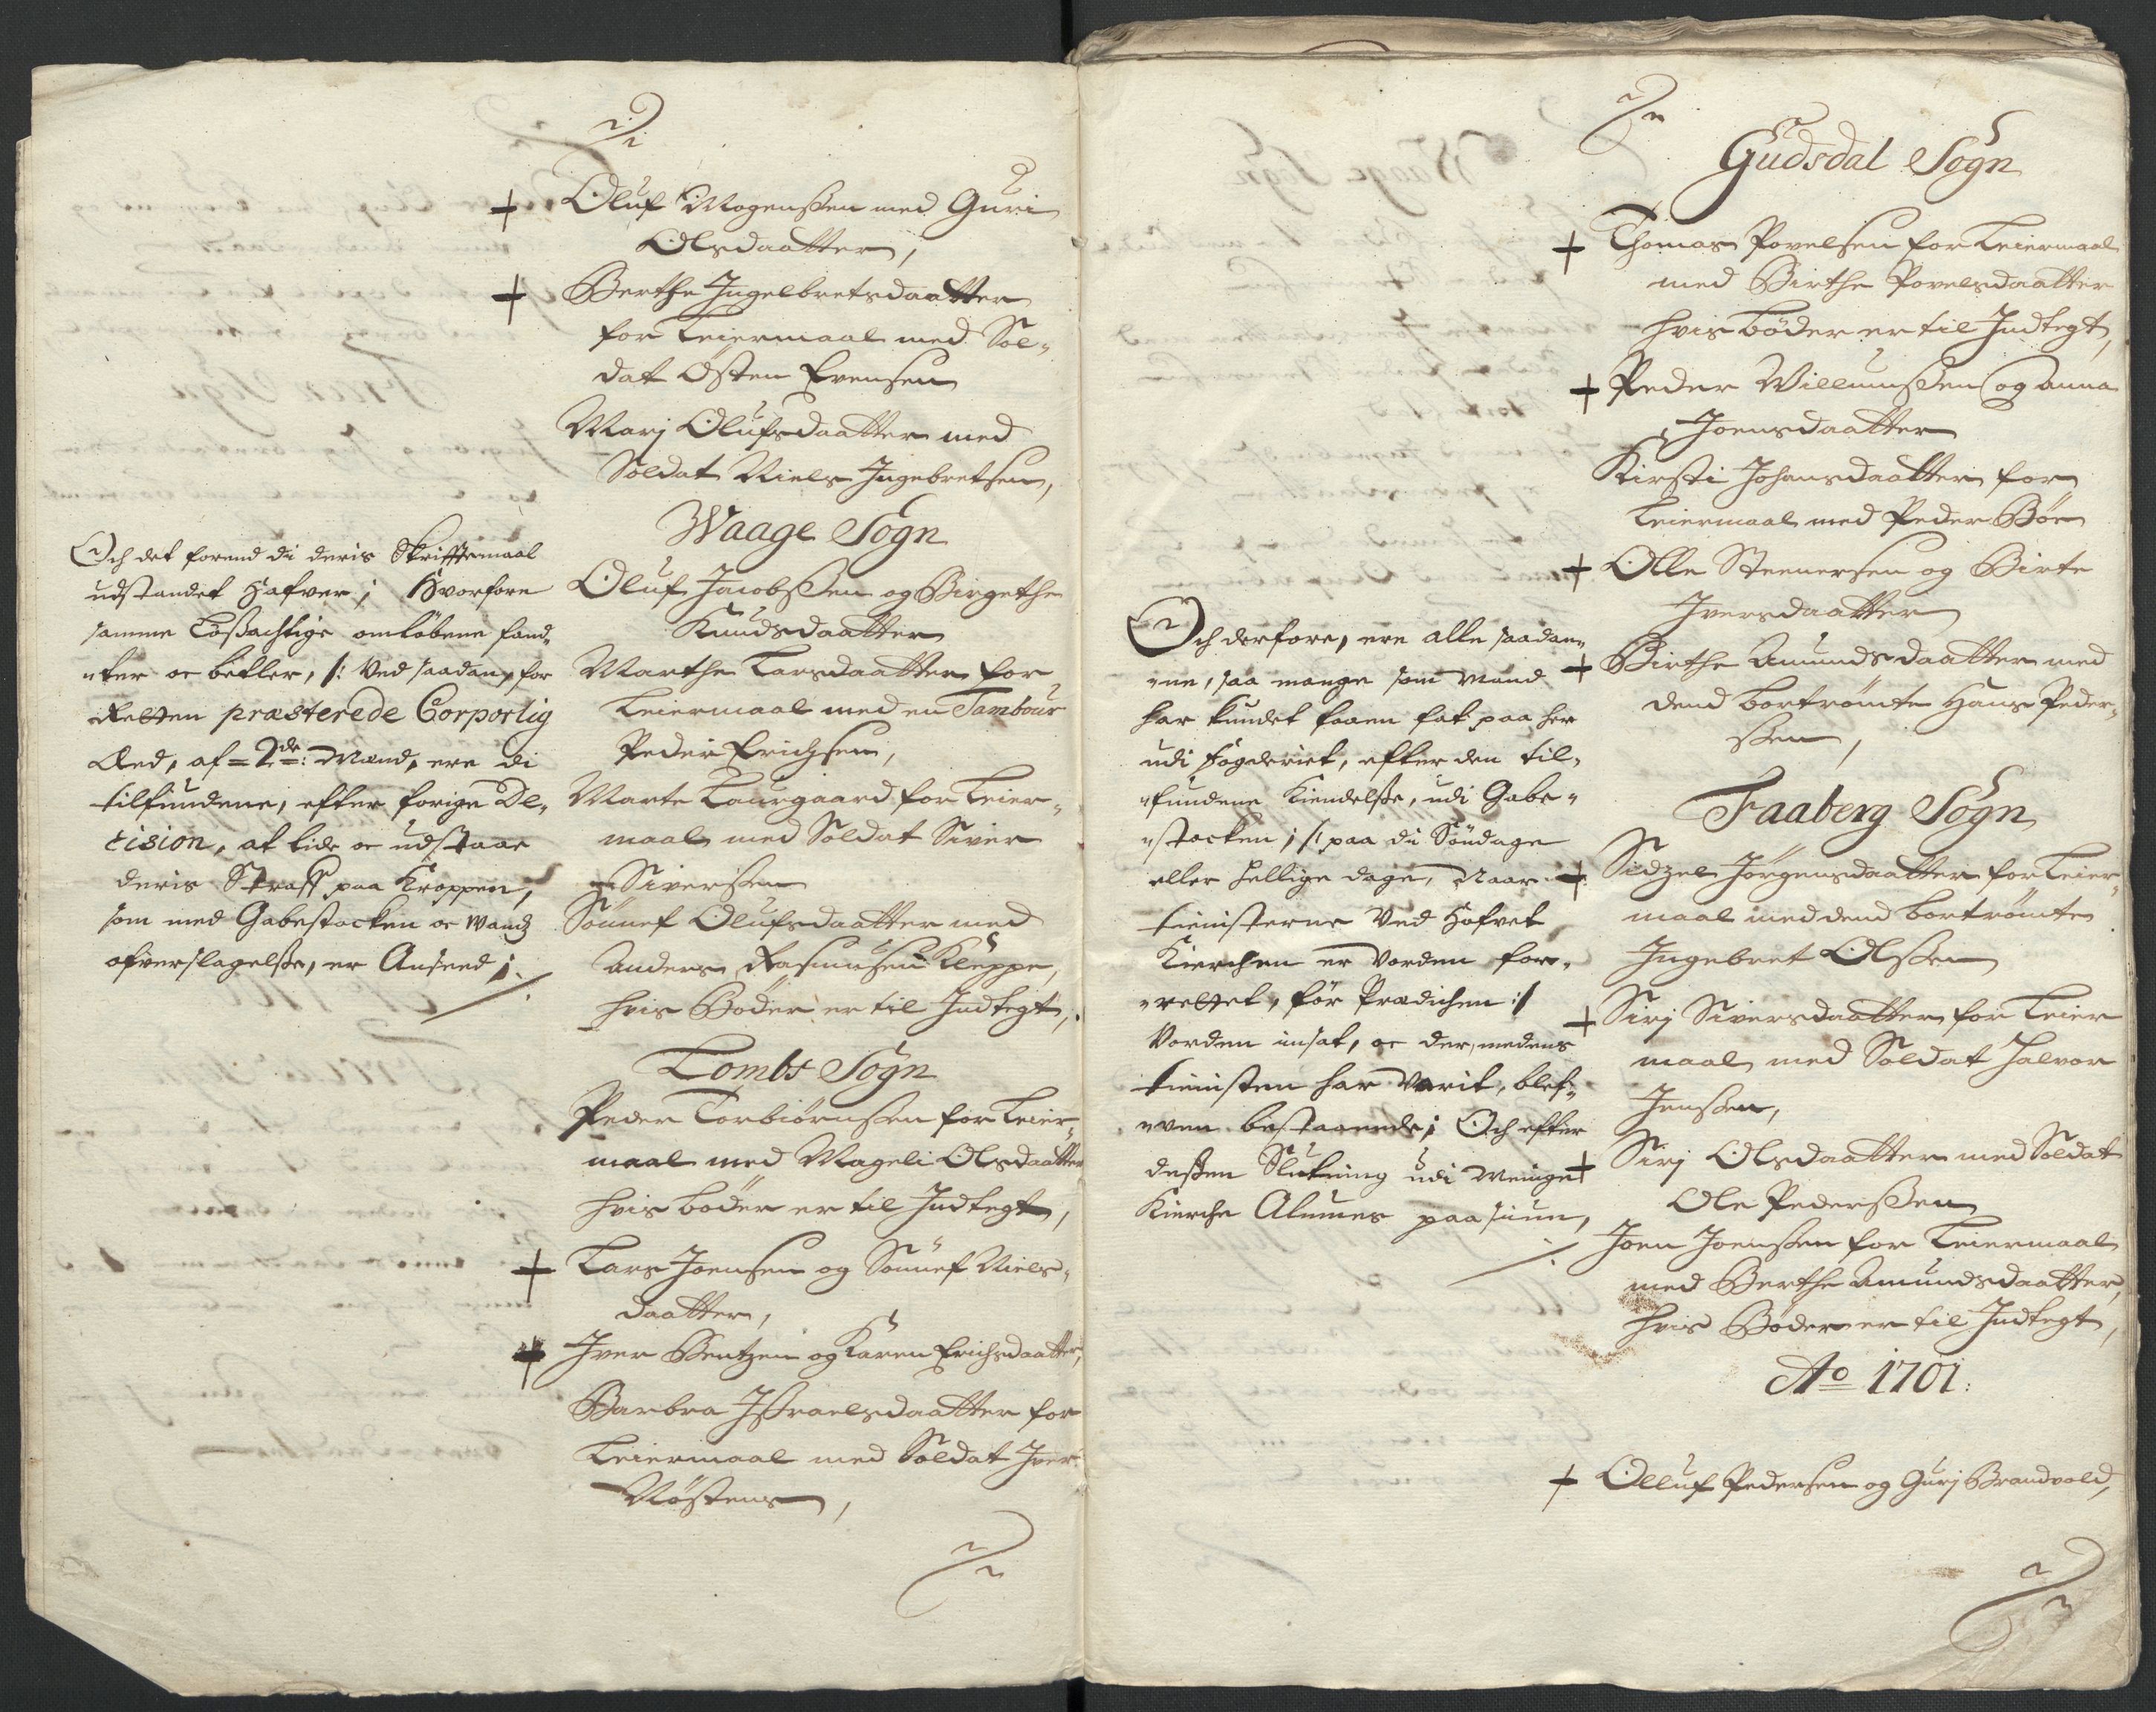 Oluf Mogenssen med Guri
Olsdaatter,
Berthe Ingelbretsdaatter
for Leiermaal med Sol-
dat Østen Evensen
Marj Olufsdaatter med
Soldat Niels Ingebretsen,
Waage Sogn
Oluf Jacobssen og Birgethe
Knudsdaatter
Marthe Larsdaatter for
Leiermaal med en Tambour
Peder Erichsen,
Marte Laurgaard for Leier-
maal med Soldat Siver
Siverssen
Sönnef Olufsdaatter med
Anders Rasmusen Kleppe,
hvis Böder er til Indtegt,
Lombs Sogn
Peder Torbiörnssen for Leier-
maal med Mageli Olsdaatter
hvis böder er til Indtegt,
Lars Joensen og Sönnef Niels-
daatter,
Iver Bentzen og Karen Erichsdaatter,
Barbra Issraelsdaatter for
Leiermaal med Soldat Iver
Nöstens,
Och det forend di deris Skrifftemaal
udstandet hafver; Hvorfore
samme Lößachtige omlöbene fand-
ter oc betler, /: Ved saadan for
Retten præsterede Corporlig
Æed, af 2de: Mænd, ere di
tilfundene, efter forige De-
cision, at lide oc udstaae
deris Straff paa Kroppen,
som med Gabestocken oc Vandz
ofverslagelsse, er Anseed;
Gudsdal Sogn
Thomas Povelsen for Leiermaal
med Birthe Povelsdaatter
hvis böder er til Indtegt,
Peder Willumssen og Anna
Joensdaatter
Kirsti Johansdaatter for
Leiermaal med Peder Böe
Olle Steenersen og Birte
Iversdaatter
Birthe Amundsdaatter med
dend bortrömte Hans Peder-
ssen,
Faaberg Sogn
Sidzel Jörgensdaatter for Leier-
maal med dend bortrömte
Ingebret Olssen
Sirj Siversdaatter for Leier
maal med Soldat Halvor
Jenssen,
Sirj Olsdaatter med Soldat
Ole Pederssen
Joen Joenssen for Leiermaal
med Berthe Amundsdaatter,
hvis Böder er til Indtegt,
Ao 1701:
Olluf Pedersen og Gurj Brandvold,
Och derfore, ere alle saadan-
ne, saa mange som mand
har kundet faaen fat paa her
udi fogderiet, efter den til-
fundene Kiendelsse, udi Gabe-
stocken; /: paa di Söndage
eller hellige dage, Naar
tienisterne Ved Hofvet
Kierchen er vorden for-
rettet, för Prædichen :/
Vorden insat, oc der, medens
tienisten har varit, blef-
ven bestaaende; Och efter
dessen Slutning udi menige
Kierche Almues paasiiun,